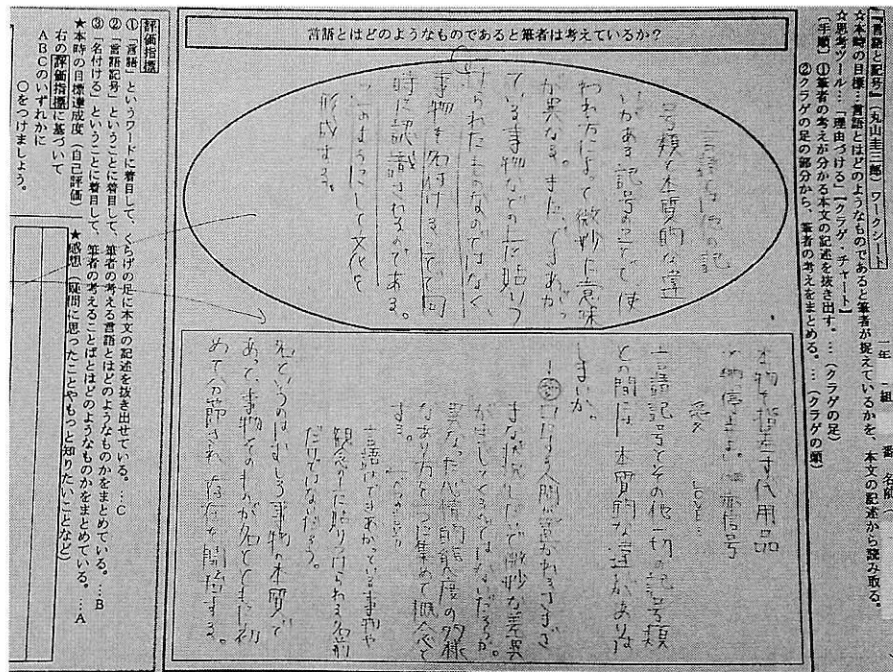 『言語と記号』（丸山圭三郎）ワークシート
一年 二組 番 名前（
☆本時の目標…言語とはどのようなものであると筆者が捉えているかを、本文の記述から読み取る。
☆思考ツール…「理由づける」【クラゲ・チャート】
（手順）①筆者の考えが分かる本文の記述を抜き出す。…（クラゲの足）
②クラゲの足の部分から、筆者の考えをまとめる。…（クラゲの頭）
言語とはどのようなものであると筆者は考えているか？
言語は他の記
号類と本質的な違
いがある記号のことで、使
われ方によって微妙に意味
が異なる。また、できあがっ
ている事物などの上に貼りつ
けられたものなのではなく、
事物を名付けることで同
時に認識されるのである。
このようにして文化を
形成する。
本物を指し示す代用品
赤信号
愛
言語記号とその他一切の記号類
との間には、本質的な違いがありは
しまいか。
口にする人間が置かれるさまざ
まな状況しだいで微妙な差異
が生じてくるのではないだろうか。
異なった心情的態度の多様
なあり方を一つに集めて概念化
する。
言語はできあがっている事物や
観念の上に貼りつけられる名前
だけではないだろう。
名というのはむしろ事物の本質で
あって、事物そのものが名とともに初
めて分節され、存在を開始する。
評価指標
①「言語」というワードに着目して、くらげの足に本文の記述を抜き出せている。…C
②「言語記号」ということに着目して、筆者の考える言語とはどのようなものかをまとめている。…B
③「名付ける」ということに着目して、筆者の考えることばとはどのようなものかをまとめている。…A
★本時の目標達成度（自己評価）
右の評価指標に基づいて
ABCのいずれかに
○をつけましょう。
★感想（疑問に思ったことやもっと知りたいことなど）